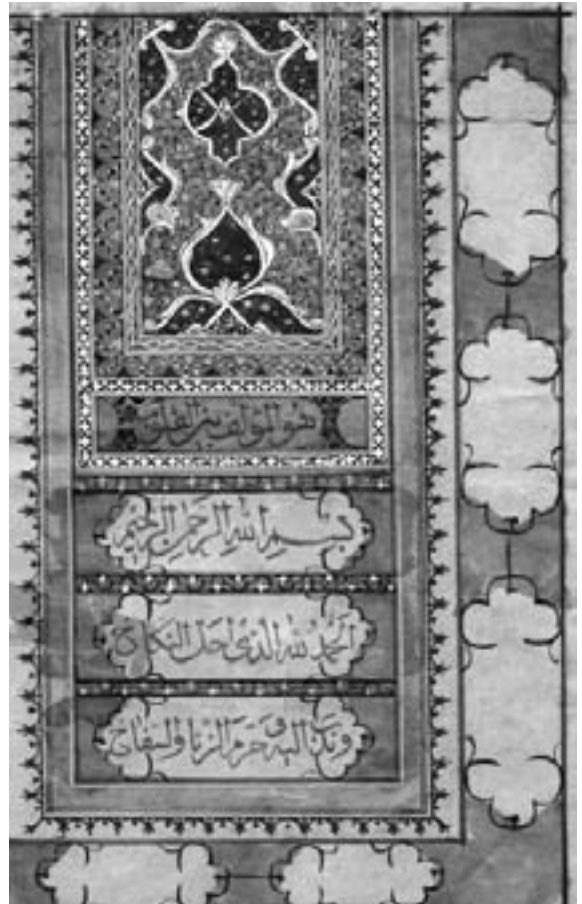 هو المؤلف بين القلوب
بسم الله الرحمن الرحيم
الحمد لله الذی احل النکاح
وندب الیه و حرم الزنا والسفاح